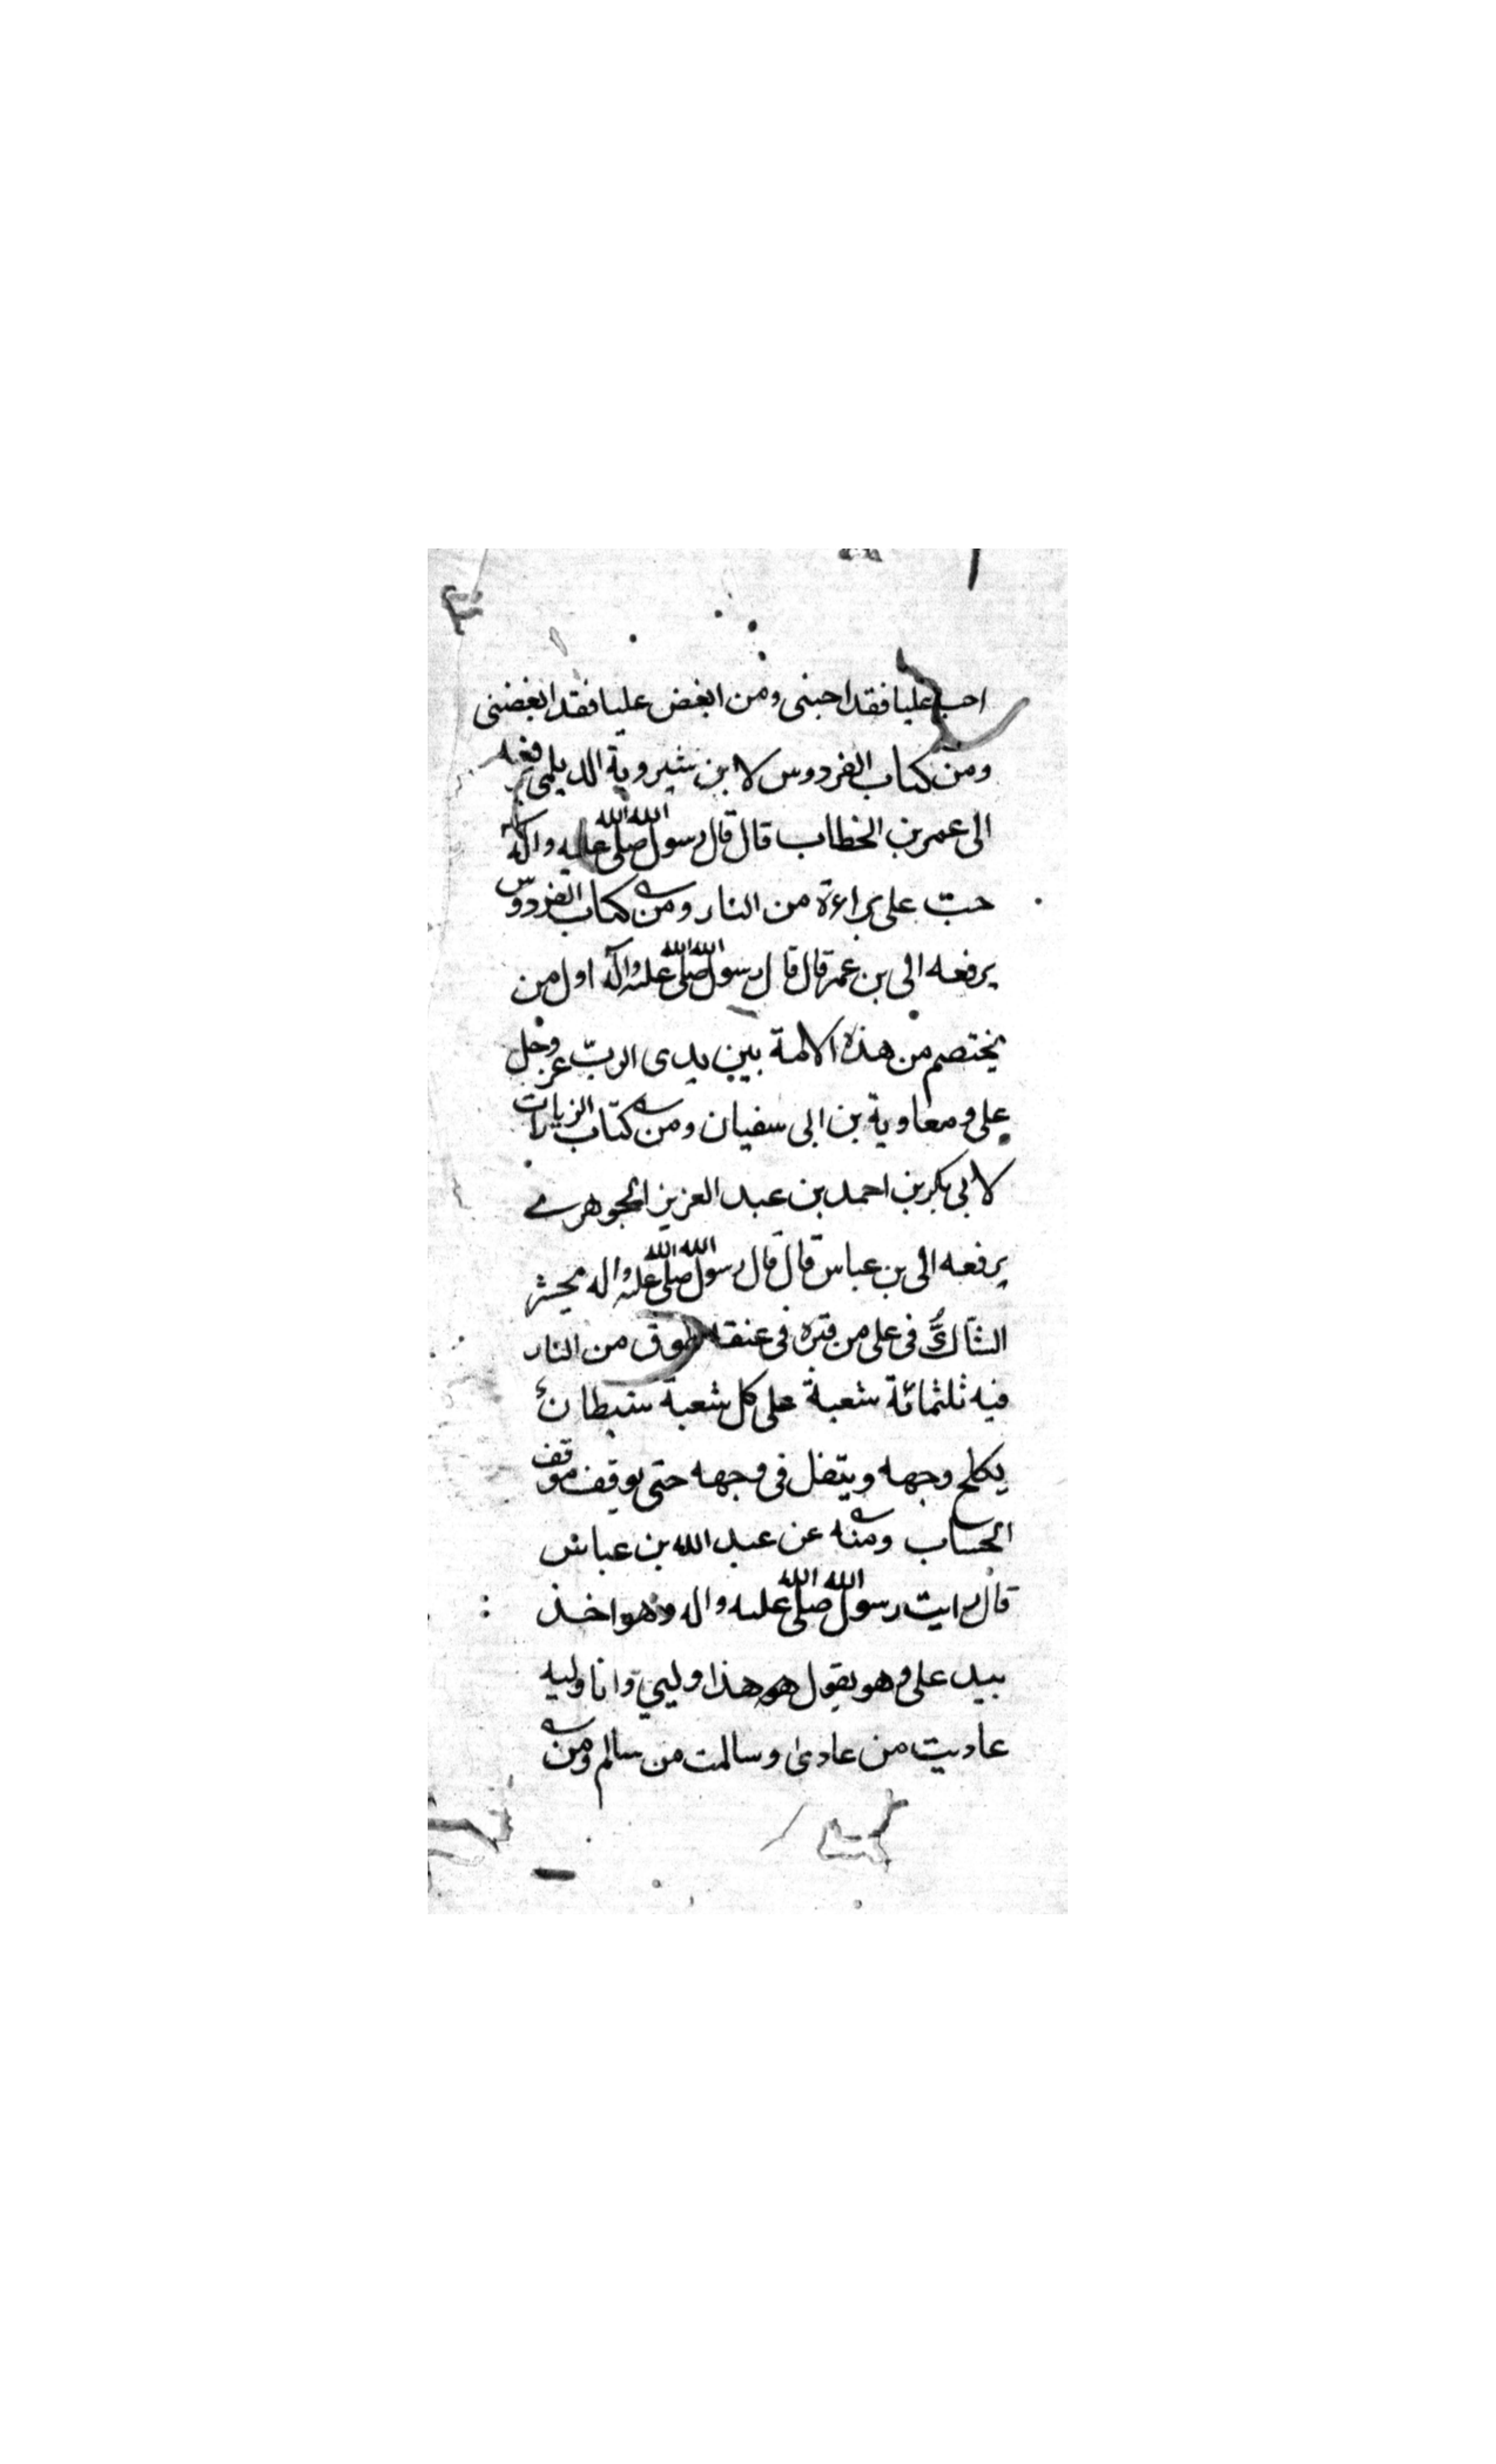 احب عليا فقد احبنى ومن ابغض عليا فقد ابغضنى
ومن كتاب الفردوس لابن شيروية الديلمى يرفعه
الى عمر بن الخطاب قال قال رسول الله صلى الله عليه واله
حب على براءة من النار ومن كتاب الفردوس
يرفعه الى بن عمر قال قال رسول الله صلى الله عليه واله اول من
يختصم من هذه الامة بين يدى الربّ عز وجل
على ومعاوية بن ابى سفيان ومن كتاب الزيارات
لابى بكر بن احمد بن عبد العزيز الجوهرى
يرفعه الى بن عباس قال قال رسول الله صلى الله عليه واله يحشر
الشاكُّ فى على من قبره فى عنقه طوق من النار
فيه ثلثمائة شعبة على كل شعبة شيطان
يكلح وجهه ويتفل فى وجهه حتى يوقف موقف
الحساب ومنه عن عبد الله بن عباس
قال رايت رسول الله صلى الله عليه واله وهو اخذ
بيد على وهو يقول هو هذا وليي وانا وليه
عاديت من عادى وسالمت من سالم ومن